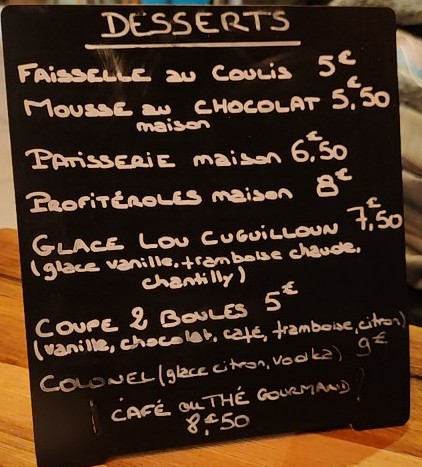 DESSERTS
FAISSELLE au COULIS 5€
MOUSSE au CHOCOLAT 5€,50
maison
PATISSERIE maison 6€,50
PROFITÉROLES maison 8€
GLACE LOU CUGUILLOUN 7€,50
(glace vanille, framboise chaude,
chantilly)
COUPE 2 BOULES 5€
(vanille, chocolat, café, framboise, citron)
COLONEL (glace citron, vodka) 9€
CAFÉ ou THÉ GOURMAND
8€,50